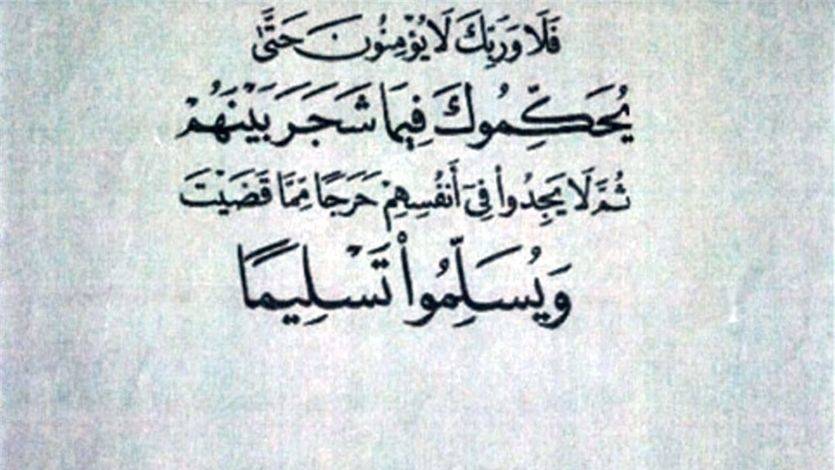 فَلَا وَرَبِّكَ لَا يُؤْمِنُونَ حَتَّىٰ
يُحَكِّمُوكَ فِيمَا شَجَرَ بَيْنَهُمْ
ثُمَّ لَا يَجِدُوا۟ فِىٓ أَنفُسِهِمْ حَرَجًا مِّمَّا قَضَيْتَ
وَيُسَلِّمُوا۟ تَسْلِيمًا